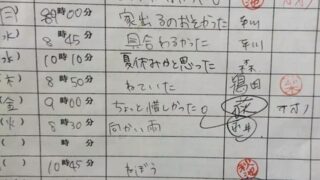 (月) 8時00分 家出るのおそかった 平川
(水) 8時45分 具合わるかった 平川
(水) 10時10分 夏休みかと思った 森
(木) 8時50分 ねていた 鶴田
(金) 9時00分 ちょっと惜しかった。 森
(火) 8時30分 向かい雨
( ) 時 分
( ) 10時45分 ねぼう